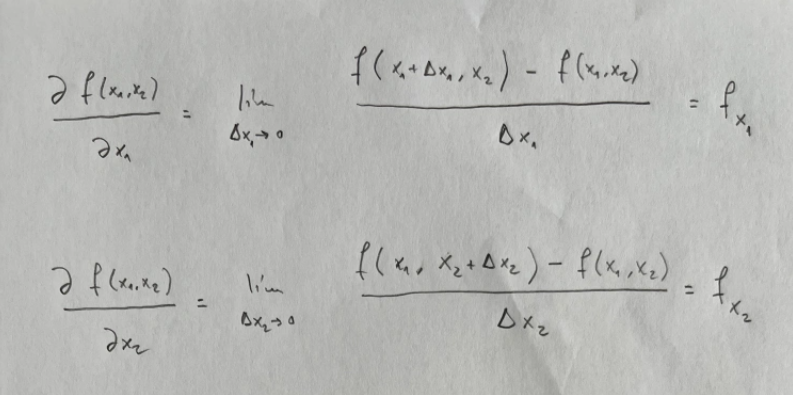 ∂f(x₁,x₂)/∂x₁ = lim Δx₁→0 (f(x₁+Δx₁, x₂) − f(x₁,x₂))/Δx₁ = f_x₁
∂f(x₁,x₂)/∂x₂ = lim Δx₂→0 (f(x₁, x₂+Δx₂) − f(x₁,x₂))/Δx₂ = f_x₂